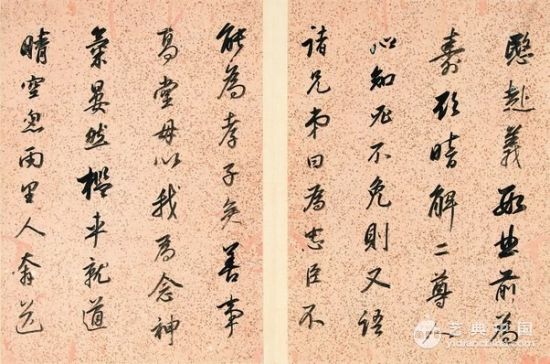 赴義前為
壽暗解二尊
心知死不免則又語
諸兄弟曰為忠臣不
能為孝子矣善事
高堂毋以我為念神
氣晏然檻車就道
晴空忽雨里人奔送
艺典中国
yidianchina.com